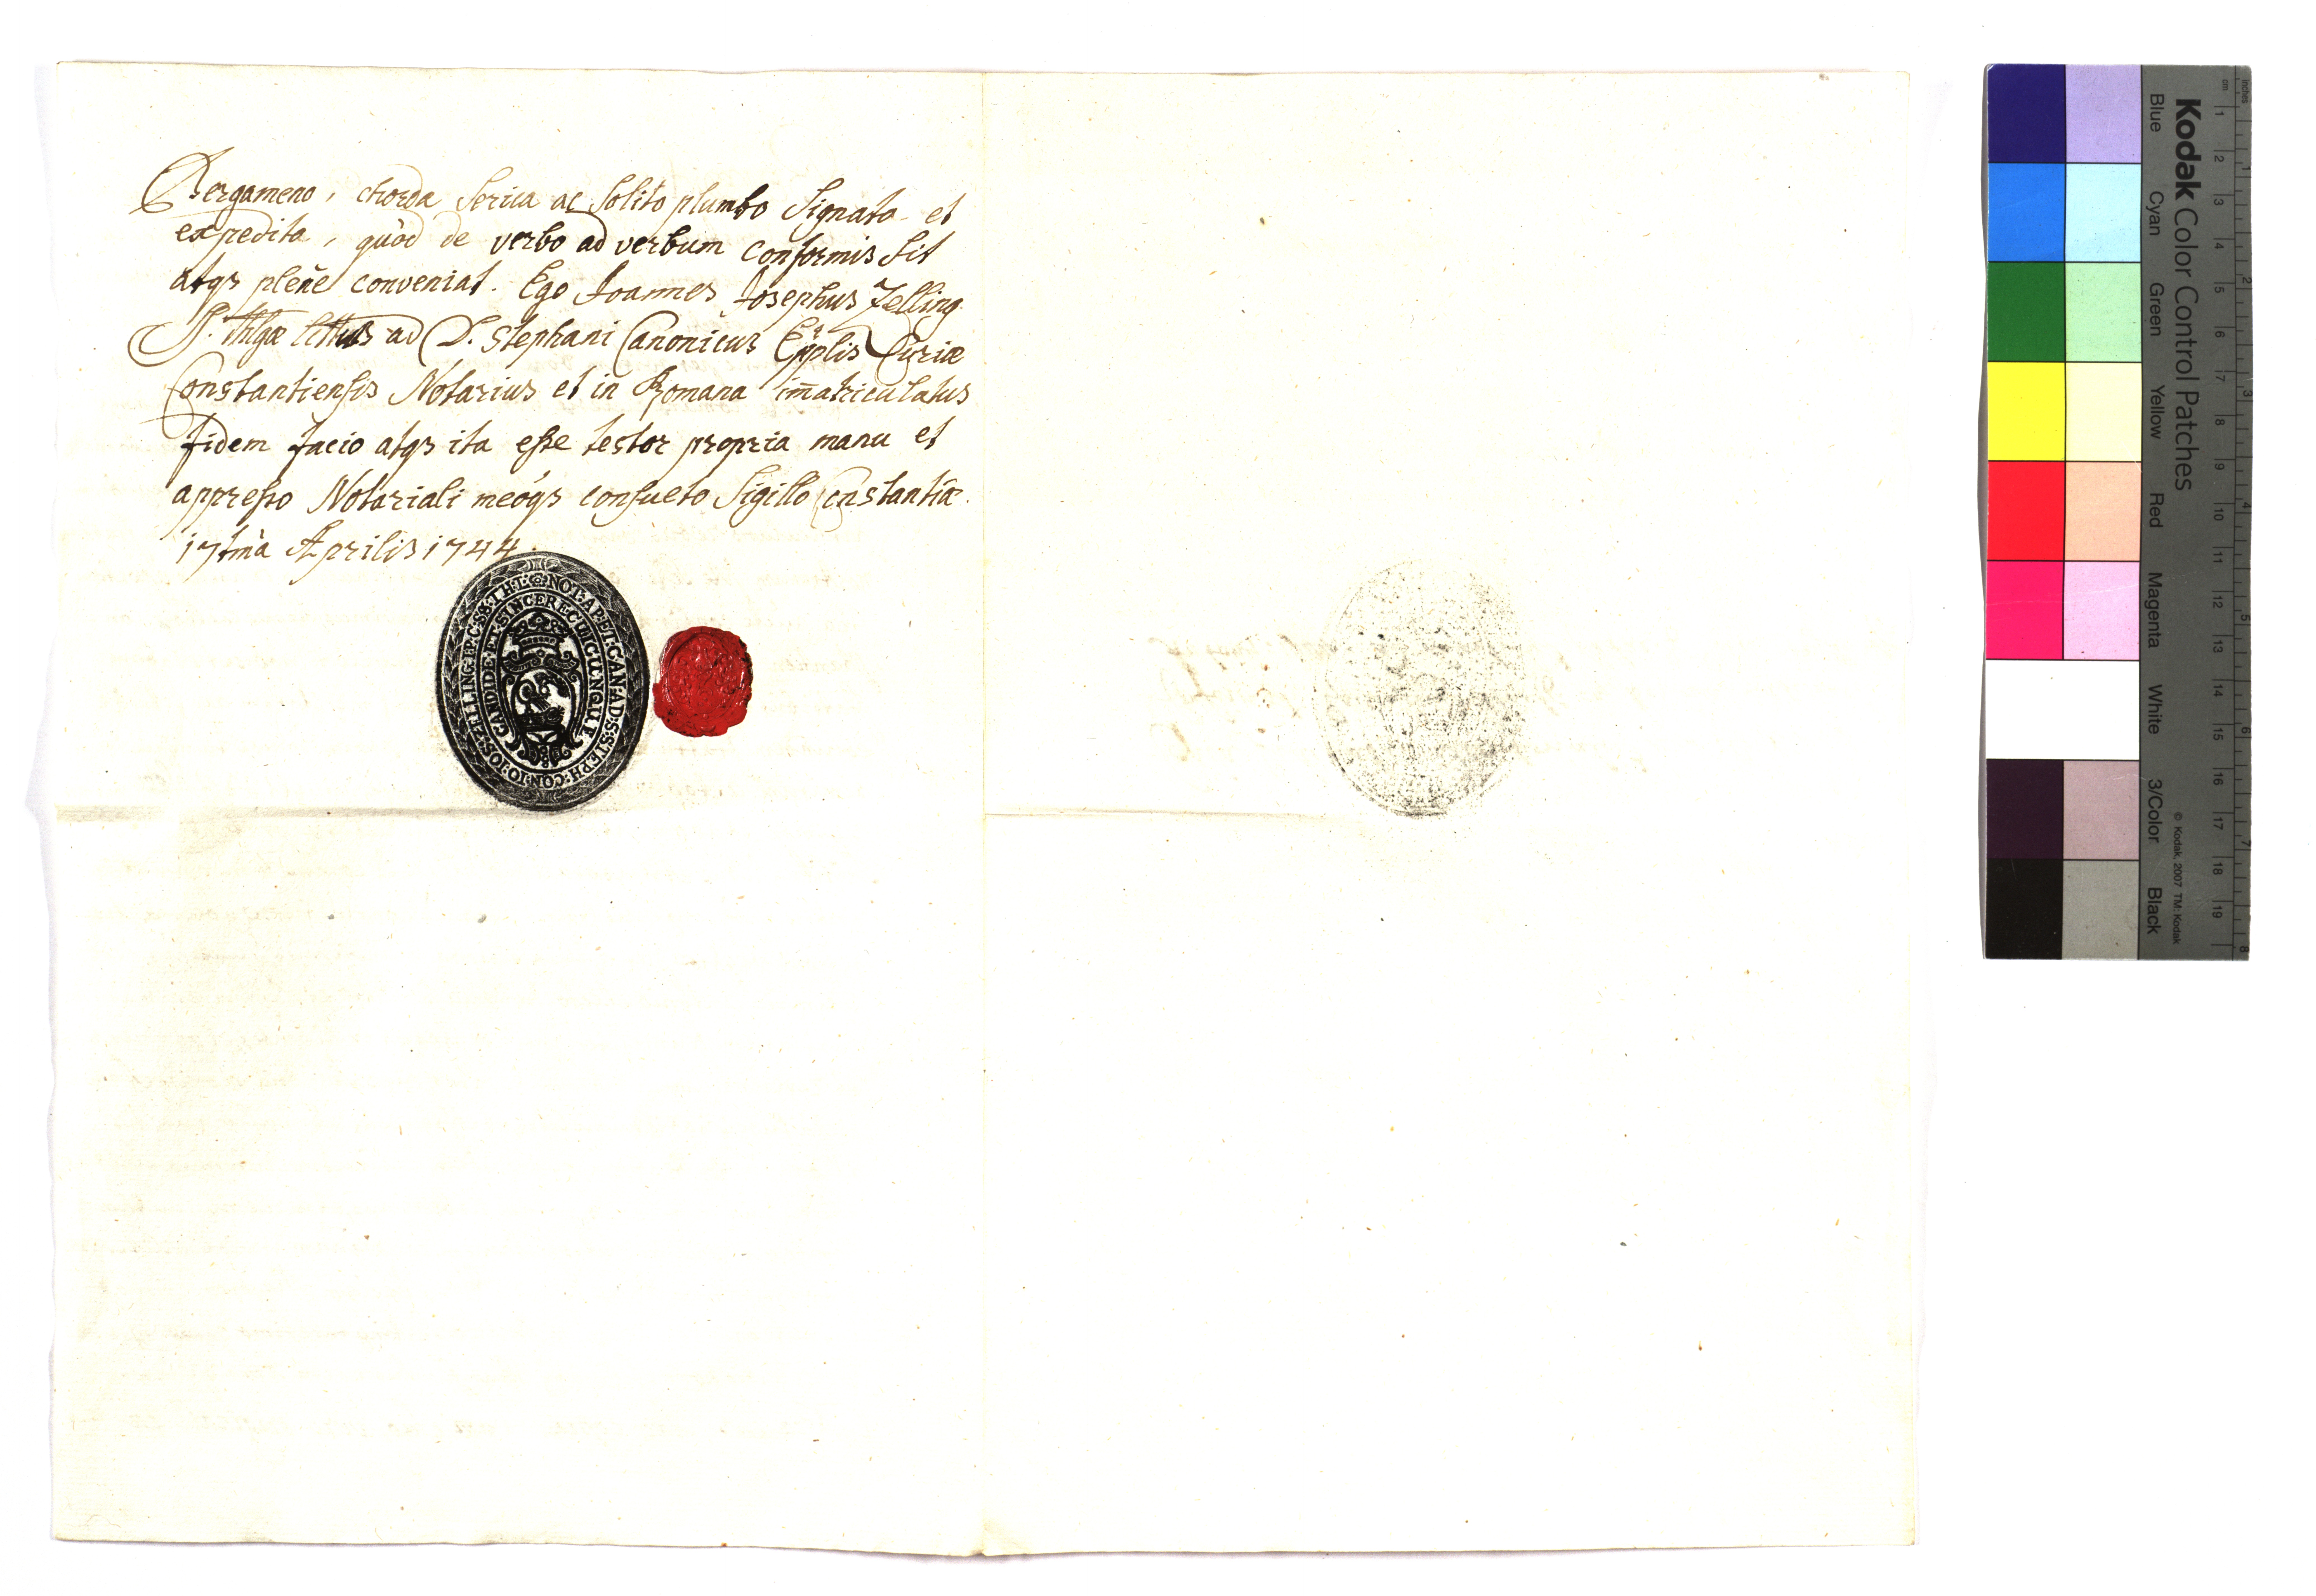 Pergameno, chorda serica ac solito plumbo signata et
expedita, quòd de verbo ad verbum conformis sit
atqs pleñe conveniat. Ego Joannes Josephus Zelling
ad D. Stephani Canonicus Epplis Curiæ
Constantiensis Notarius et in Romana im̄atriculatus
fidem facio atqs ita esse testor propria manu et
appresso Notariali meóqs consueto Sigillo Constantiæ.
17tmà Aprilis 1744.
NOT·AP·ET·CAN·AD·S·STEPH·CON·IO·IOS·ZELLING
CANDIDE·ET·SINCERE·CUICUNQUE
Kodak Color Control Patches
Blue Cyan Green Yellow Red Magenta White 3/Color Black
© Kodak, 2007 TM: Kodak
cm 1 2 3 4 5 6 7 8 9 10 11 12 13 14 15 16 17 18 19
inches 1 2 3 4 5 6 7 8